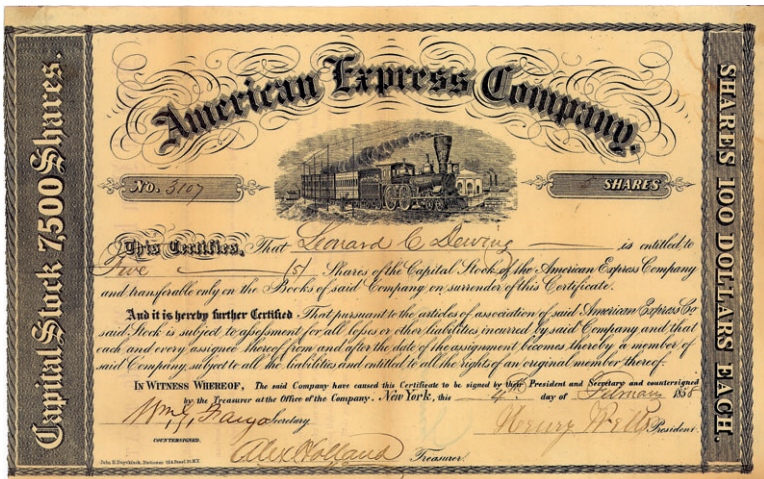 American Express Company.
Capital Stock 7500 Shares.
No. 3107
5 SHARES
This Certifies, That Leonard C Dewing is entitled to
Five (5) Shares of the Capital Stock of the American Express Company
and transferable only on the Books of said Company on surrender of this Certificate.
And it is hereby further Certified That pursuant to the articles of association of said American Express Co
said Stock is subject to assessment for all losses or other liabilities incurred by said Company and that
each and every assignee thereof from and after the date of the assignment becomes thereby a member of
said Company, subject to all the liabilities and entitled to all the rights of an original member thereof.
IN WITNESS WHEREOF, The said Company have caused this Certificate to be signed by their President and Secretary and countersigned
by the Treasurer at the Office of the Company. New York, this 4 day of February 185
Wm G. Fargo Secretary.
Henry Wells President.
COUNTERSIGNED.
Alex Holland Treasurer.
Stationer
SHARES 100 DOLLARS EACH.